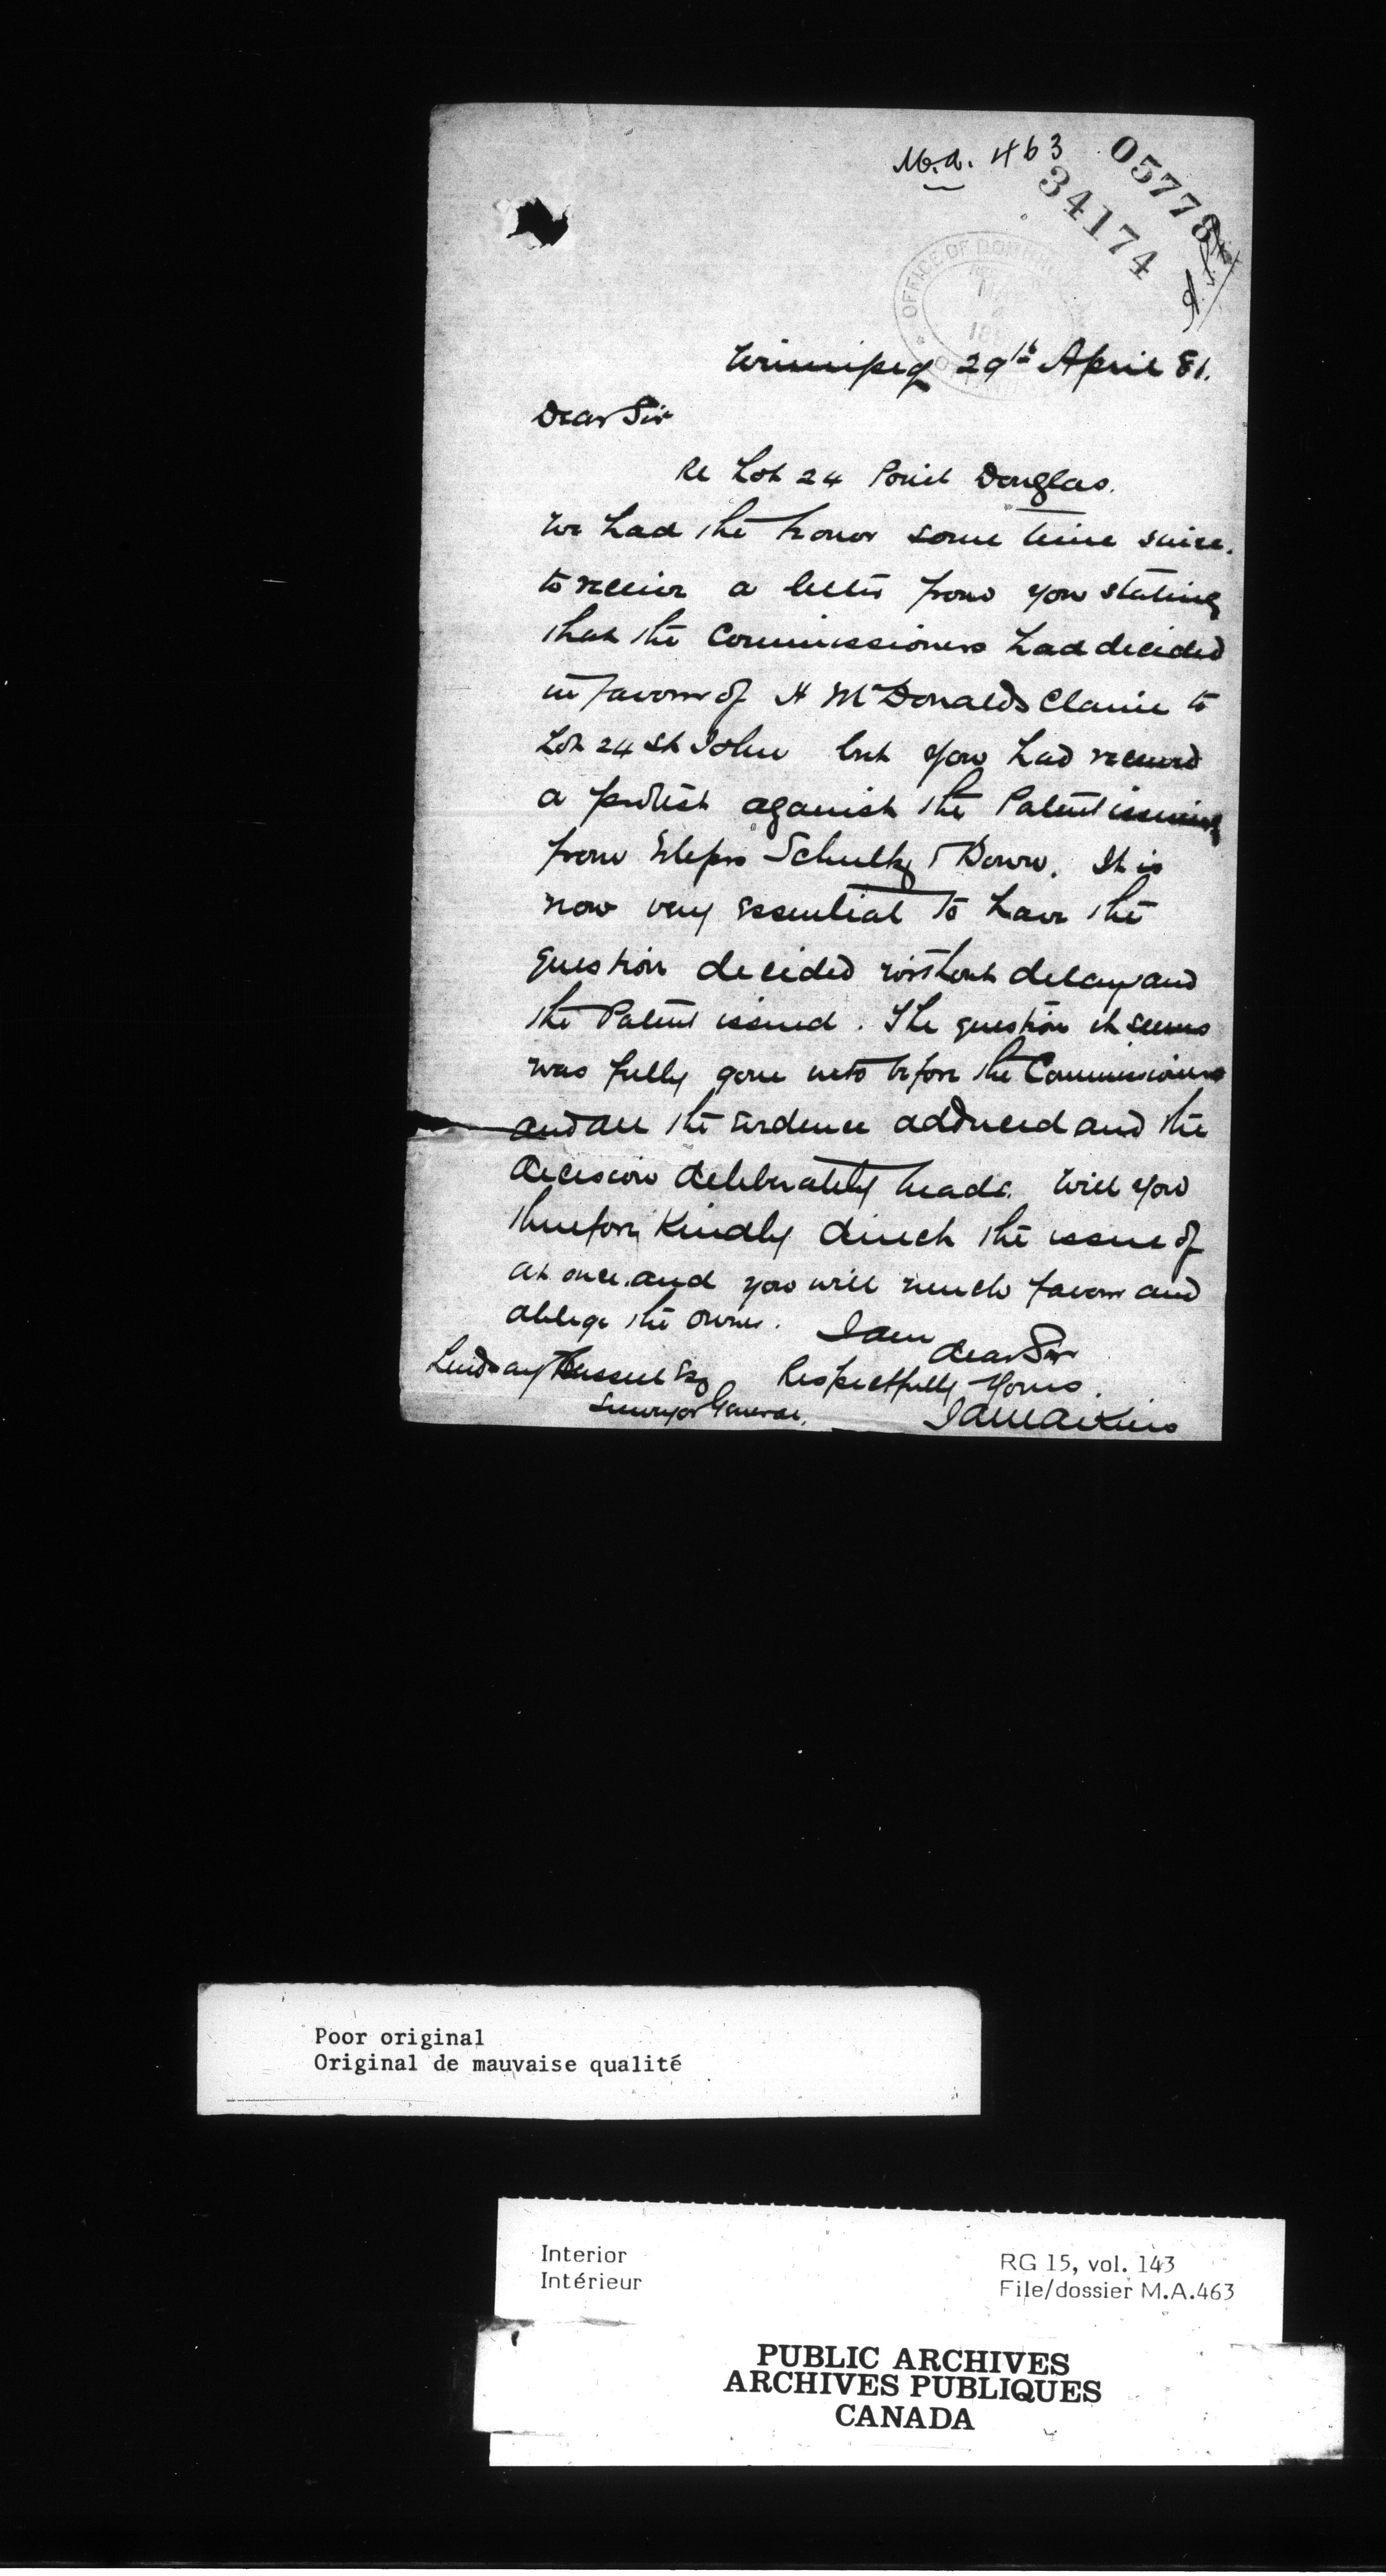 M.A. 463
05778
34174
OFFICE OF DOMIN
Winnipeg 29th April 81.
Dear Sir
Re Lot 24 Point Douglas.
We had the honor some time since
to receive a letter from you stating
that the Commissioners had decided
in favour of H McDonalds Claim to
Lot 24 St John but you had received
a protest against the Patent issuing
from Messrs Schultz & Down. It is
now very essential to have the
question decided without delay and
the Patent issued. The question it seems
was fully gone into before the Commissioners
and all the evidence adduced and the
decision deliberately made. Will you
therefore Kindly direct the issue of
at once and you will much favour and
oblige the owner. I am
dear Sir
Lindsay Russell Esq Respectfully Yours.
Surveyor General. JAMAikins
Poor original
Original de mauvaise qualité
Interior
Intérieur
RG 15, vol. 143
File/dossier M.A.463
PUBLIC ARCHIVES
ARCHIVES PUBLIQUES
CANADA